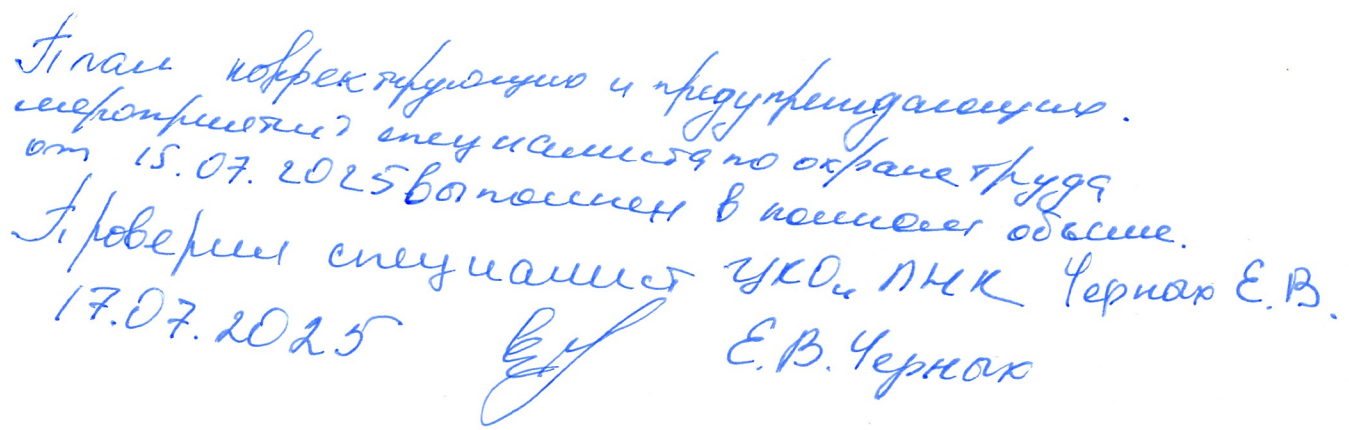 План корректирующих и предупреждающих
мероприятий специалиста по охране труда
от 15.07.2025 выполнен в полном объеме.
Проверил специалист ЦКО и ЛНК Черных Е.В.
17.07.2025 Е.В. Черных